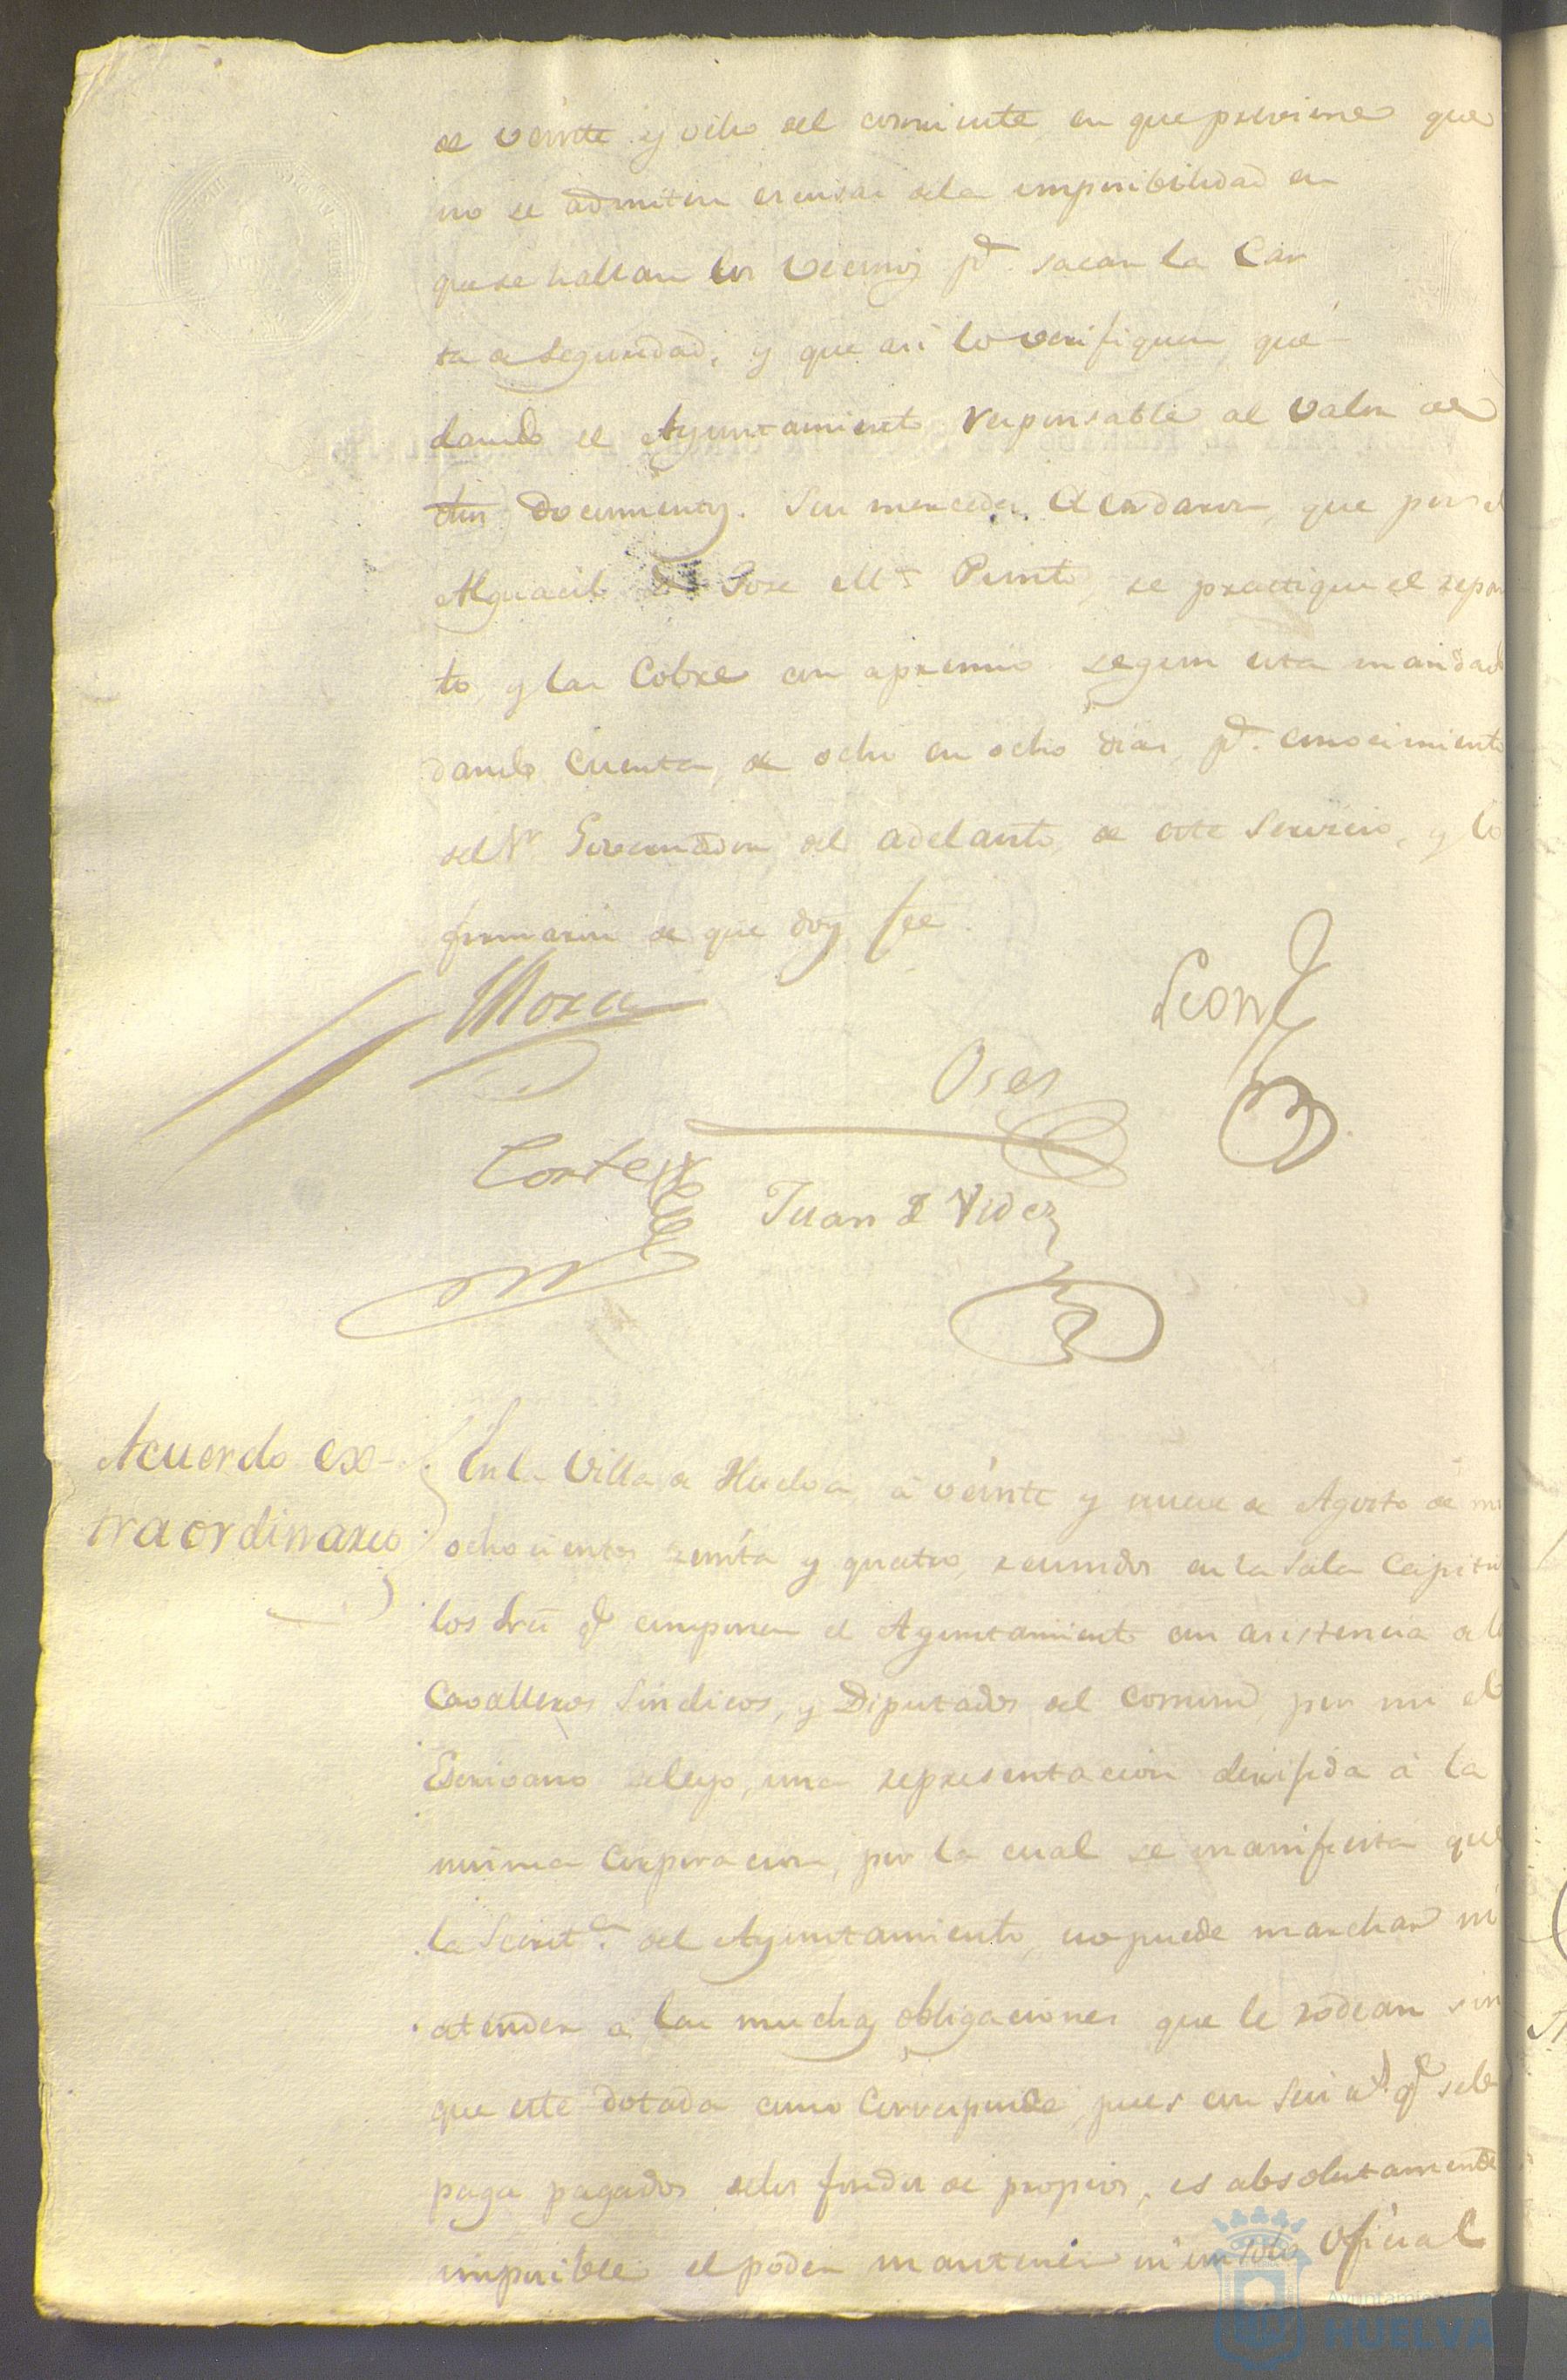 de veinte y ocho del corriente en que previene que
no se admiten escusas dela imposibilidad en
que se hallan los Vecinos pa. sacar la Car
ta de Seguridad, y que asi lo verifiquen que-
dando el Ayuntamiento responsable al valor de
dhos documentos. Sus mercedes Acordaron, que por el
Alguacil Jose Ma Pinto, se practique el repar
to, y las Cobre con apremio segun esta mandado
dando Cuenta, de ocho en ocho dias, pa. conocimiento
del Sr Governador del adelanto de este Servicio, y lo
firmaron de que doy fee.
Mora
Leon
Oses
Cortes
Juan de Videz
Acuerdo ex-
traordinario
En la Villa de Huelva, á veinte y nueve de Agosto de mil
ochocientos treinta y quatro, reunidos en la Sala Capitu
los Sres qe componen el Ayuntamiento con asistencia de los
Cavalleros Sindicos, y Diputados del Comun, por mi el
Escrivano se leyo, una representacion dirifida á la
misma Corporacion, por la cual se manifiesta que
la Secreta. del Ayuntamiento, no puede marchar ni
atender a las muchas obligaciones que le rodean sin
que este dotada como Corresponde, pues con seis rs. qe se le
paga pagados delos fondos de propios, es absolutamente
imposible el poder mantener ni un solo Oficial
Ayuntamiento
HUELVA